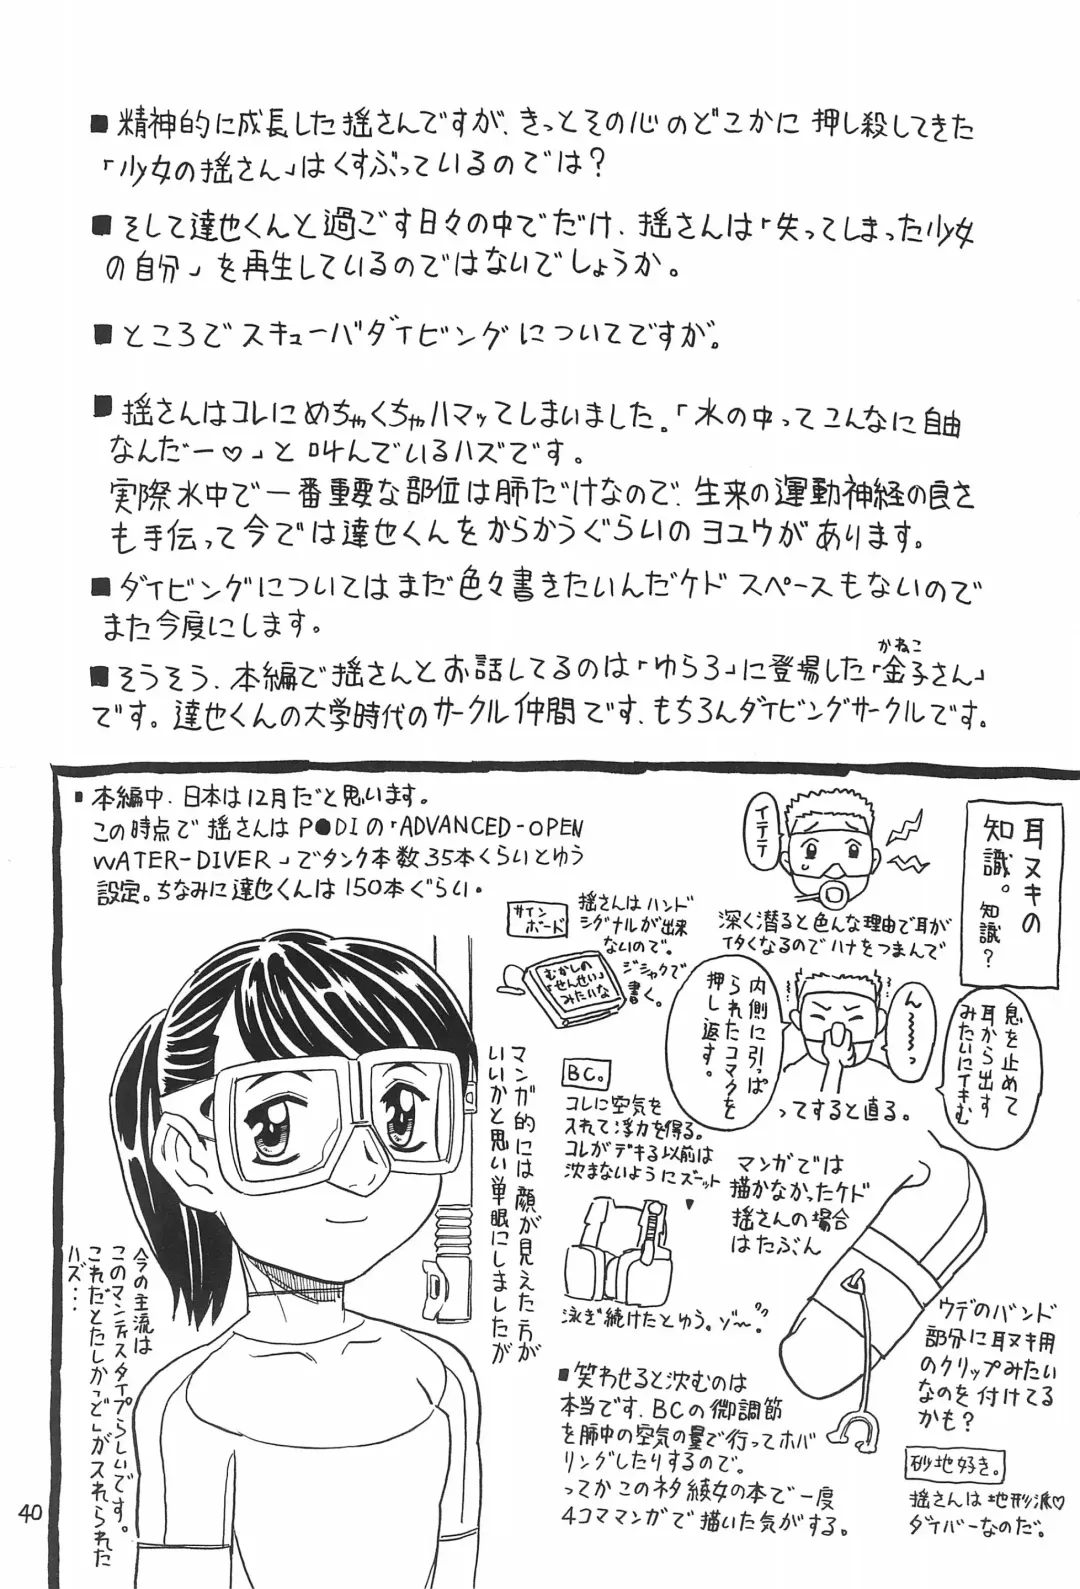 ■精神的に成長した揺さんですが、きっとその心のどこかに押し殺してきた
「少女の揺さん」はくすぶっているのでは？
■そして達也くんと過ごす日々の中でだけ、揺さんは「失ってしまった少女
の自分」を再生しているのではないでしょうか。
■ところでスキューバダイビングについてですが。
■揺さんはコレにめちゃくちゃハマッてしまいました。「水の中ってこんなに自由
なんだー♡」と叫んでいるハズです。
実際水中で一番重要な部位は肺だけなので、生来の運動神経の良さ
も手伝って今では達也くんをからかうぐらいのヨユウがあります。
■ダイビングについてはまだ色々書きたいんだケドスペースもないので
また今度にします。
かねこ
■そうそう、本編で揺さんとお話してるのは「ゆらろ」に登場した「金子さん」
です。達也くんの大学時代のサークル仲間です、もちろんダイビングサークルです。
■本編中、日本は12月だと思います。
この時点で揺さんはP●DIの「ADVANCED-OPEN
WATER-DIVER」でタンク本数35本くらいとゆう
設定。ちなみに達也くんは150本ぐらい.
耳ヌキの
知識。知識？
イテテテ
深く潜ると色んな理由で耳が
イタくなるのでハナをつまんで
息を止めて
耳から出す
みたいにイキむ
ん〜〜〜っ
内側に引っぱ
られたコマクを
押し返す。
ってすると直る。
サイン
ボード
揺さんはハンド
シグナルが出来
ないので。
ジシャクで
書く。
むかしの
「せんせい」
みたいな
BC。
コレに空気を
入れて浮力を得る。
コレがデキる以前は
沈まないようにズーット
▼
泳ぎ続けたとゆう。ゾ〜。
マンガでは
描かなかったケド
揺さんの場合
はたぶん
ウデのバンド
部分に耳ヌキ用
のクリップみたい
なのを付けてる
かも？
砂地好き。
揺さんは地形派♡
ダイバーなのだ。
■笑わせると沈むのは
本当です、BCの微調節
を肺中の空気の量で行ってホバ
リングしたりするので。
ってかこのネタ綾女の本で一度
4コママンガで描いた気がする。
マンガ的には顔が見えた方が
いいかと思い単眼にしましたが
今の主流は
このマンティスタイプらしいです。
これだとたしか「っど」が入れられた
ハズ...
40